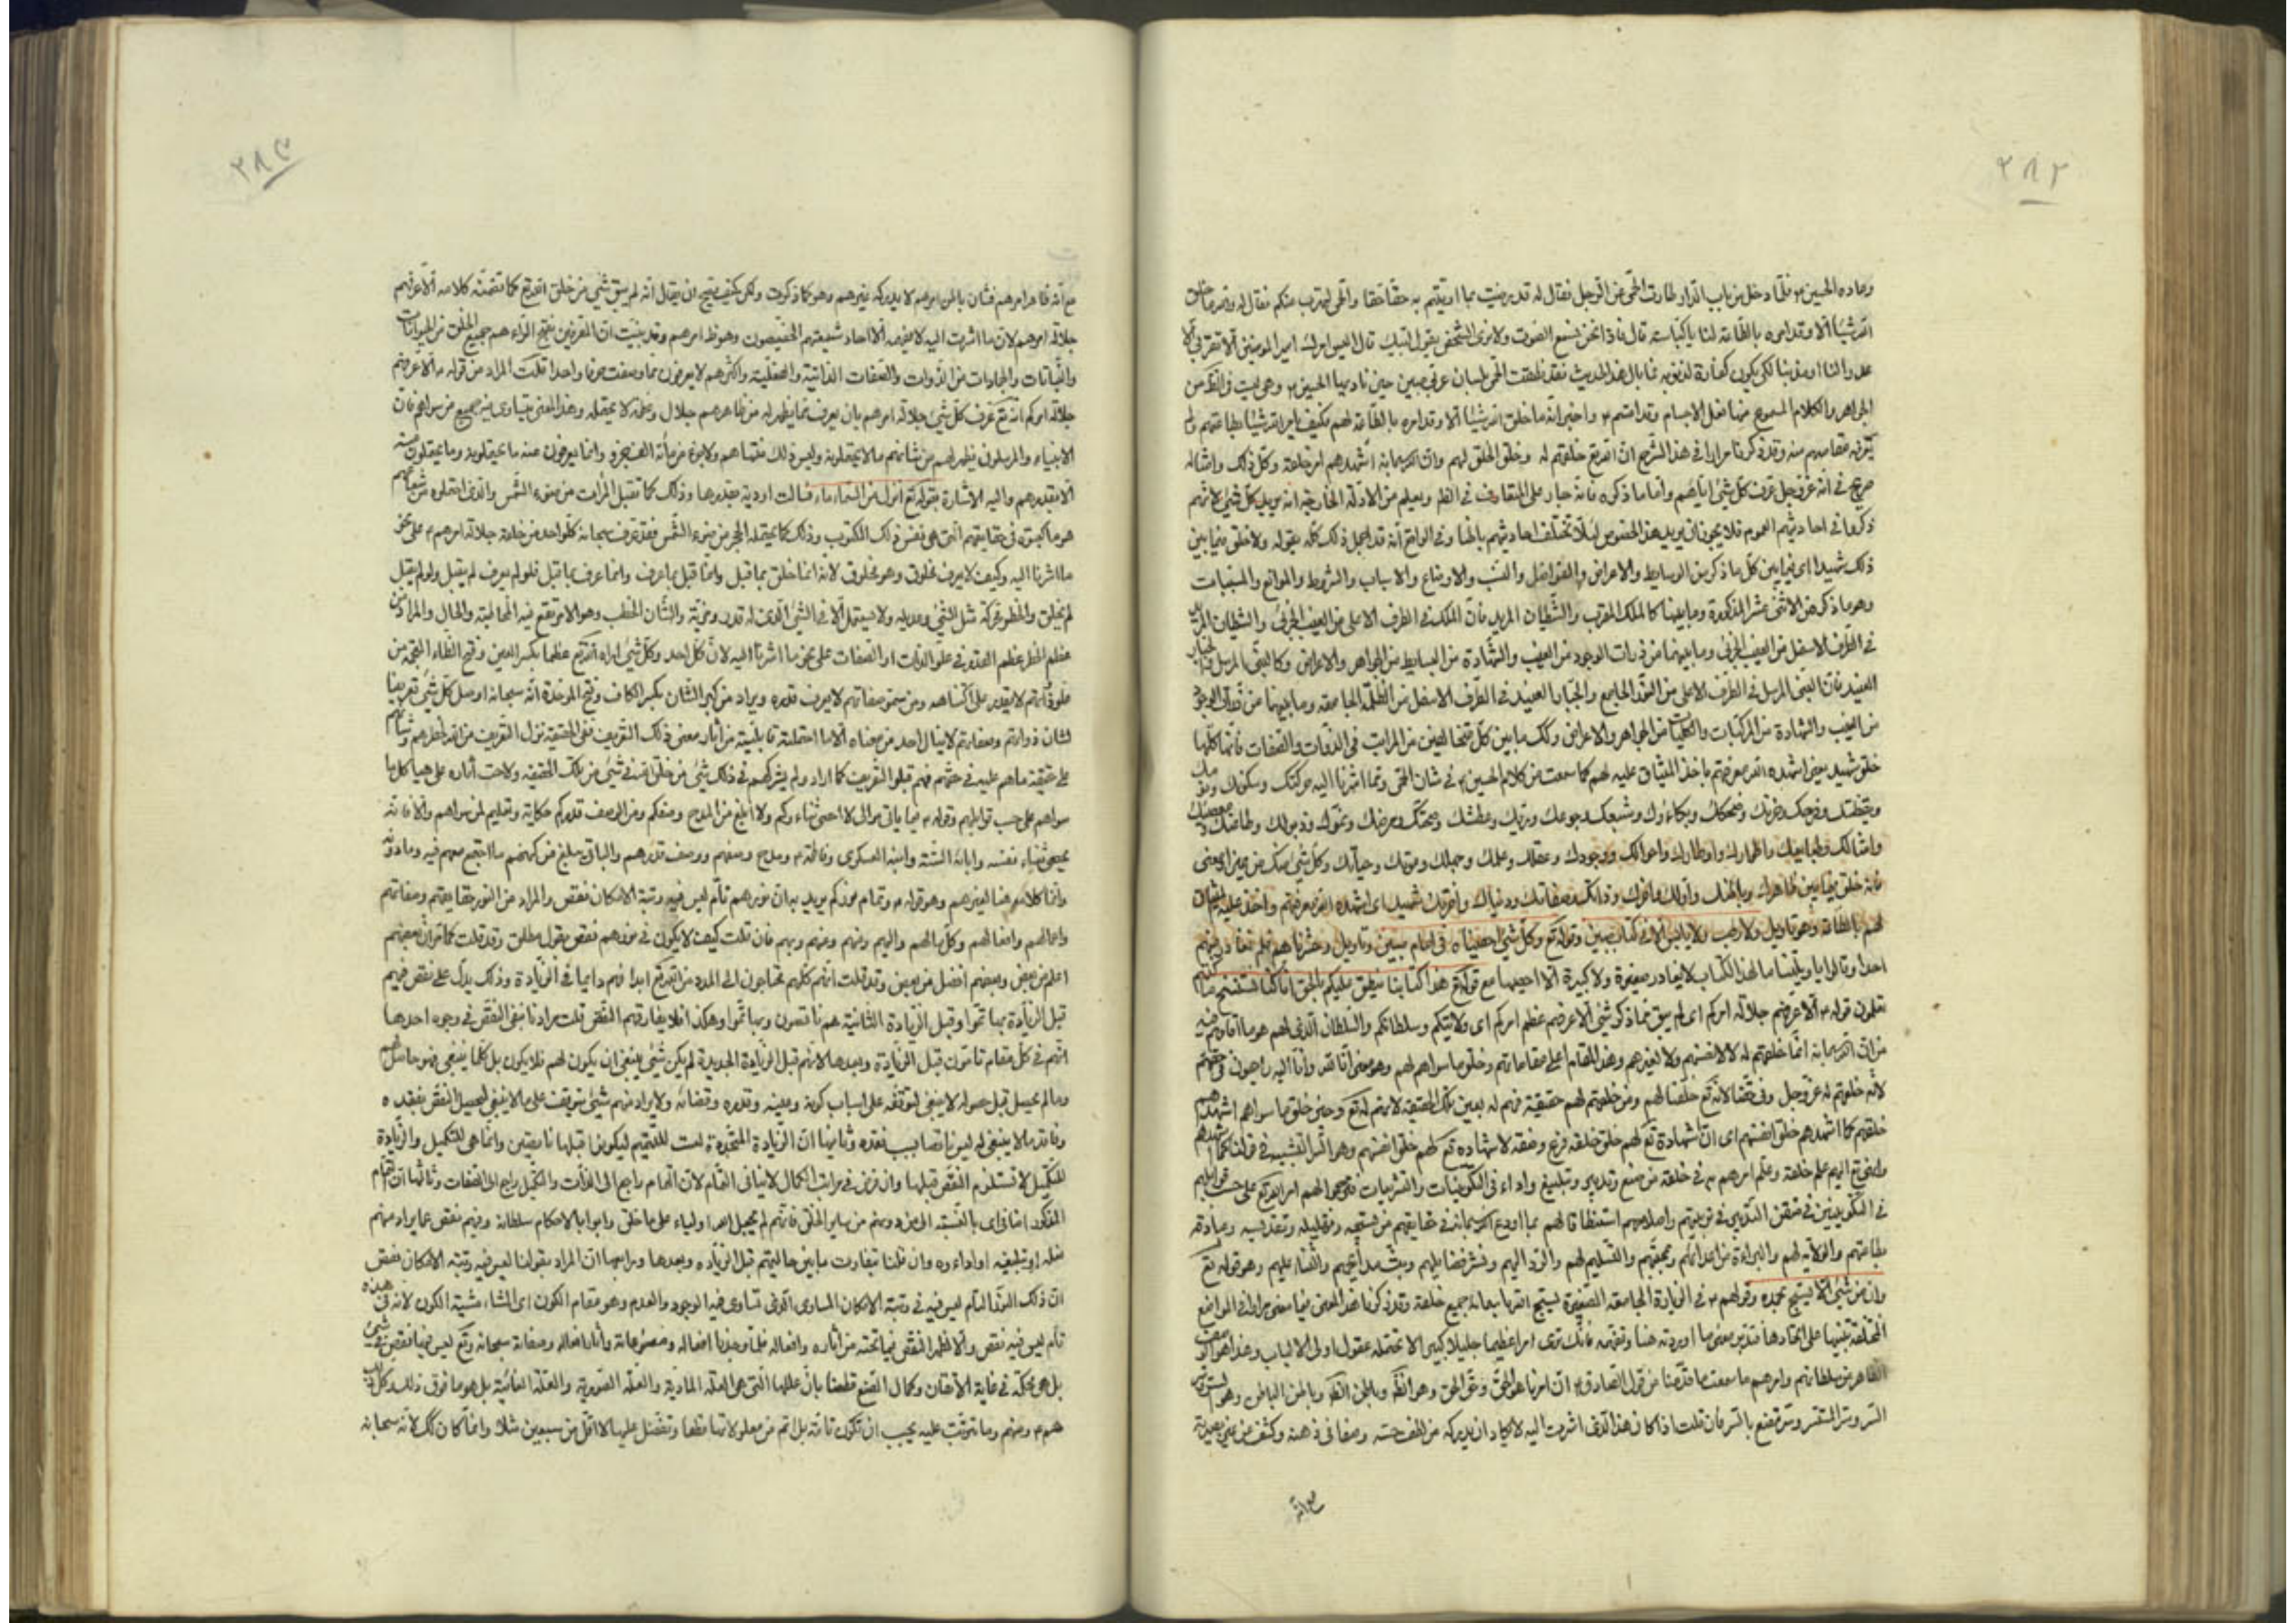 ٢٨٢
وعاده الحسين ع فلما دخل من باب الدار طارت الحمى عن الرجل فقال له قد رضيت بما اوتيتم به حقا حقا والحمى لتهرب منكم فقال له والله ما خلق
الله شيئا الا وقد امره بالطاعة لنا يا كباسة قال فاذا نحن نسمع الصوت ولا نرى الشخص يقول لبيك قال اليس امرك امير المؤمنين الا تقربي الا
عدوا لنا او مذنبا لكي يكون كفارة لذنوبه فما بال هذا الحديث فقد نطقت الحمى بلسان عربي مبين حين ناديها الحسين ع وهي ليست في الظ من
الجواهر والكلام المسموع منها فعل الاجسام وقد اقسم ع واخبر انه ما خلق الله شيئا الا وقد امره بالطاعة لهم فكيف يامر الله شيئا بطاعتهم ولم
يعرفه مقامهم منه وقد ذكرنا مرارا في هذا الشرح ان الله تع خلقهم له وخلق الخلق لهم وان الله سبحانه اشهدهم امر خلقه وكل ذلك وامثاله
صريح في انه عز وجل عرف كل شئ اياهم واما ما ذكره فانه جار على المتعارف في الظ ويعلم من الادلة الخارجة انه يريد كل شئ لانهم
ذكروا في احاديثهم العموم فلا يجوز ان يريد هذا الخصوص لئلا تختلف احاديثهم بالها وفي الواقع انه قد اجمل ذلك كله بقوله ولا خلق فيما بين
ذلك شهيد اى فيما بين كل ما ذكر من الوسايط والاعراض والفواضل والنسب والاوضاع والاسباب والشروط والموانع والمسببات
وهو ما ذكر من الاثنى عشر المذكورة وما بينها كالملك المقرب والشيطان المريد فان الملك في الطرف الاعلى من الغيب الجزئى والشيطان المريد
في الطرف الاسفل من الغيب الجزئى وما بينهما من ذرات الوجود من الغيب والشهادة من البسايط من الجواهر والاعراض وكالنبى المرسل والجبار
العنيد فان النبى المرسل في الطرف الاعلى من النور الجامع والجبار العنيد في الطرف الاسفل من الظلمة الجامعة وما بينهما من ذرات الوجود
من الغيب والشهادة من المركبات والكليات من الجواهر والاعراض وكك ما بين كل متخالفين من المراتب في الذوات والصفات فانها كلها
خلق شهيد يعنى اشهده الله معرفتهم باخذ الميثاق عليه لهم كما سمعت من كلام الحسين ع في شان الحمى ومما اشرنا اليه حركتك وسكونك ونومك
ويقظتك وفرحك وحزنك وضحكك وبكاءك وشبعك وجوعك وريك وعطشك وصحتك ومرضك ونموك وذبولك وطاعتك ومعصيتك
وامثالك وطبايعك واطوارك واوطارك واحوالك ووجودك وعقلك وعلمك وجهلك وموتك وحياتك وكل شئ منك من هذا المعنى
فانه خلق فيما بين ظاهرك وباطنك واولك واخرك وذاتك وصفاتك ودنياك واخرتك شهيد اى اشهده الله معرفتهم واخذ عليه الميثاق
لهم بالطاعة وهو تاويل ولا رطب ولا يابس الا في كتاب مبين وقوله تع وكل شئ احصيناه في امام مبين وتاويل وحشرناهم فلم نغادر منهم
احدا وقالوا يا ويلتنا مال هذا الكتاب لا يغادر صغيرة ولا كبيرة الا احصيها مع قوله تع هذا كتابنا ينطق عليكم بالحق انا كنا نستنسخ ما كنتم
تعملون قوله ع الا عرفهم جلالة امركم اى لم يبق مما ذكر شئ الا عرفهم عظم امركم اى ولايتكم وسلطانكم والسلطان الذى لهم هو ما اقامهم فيه
من ان الله سبحانه انما خلقهم له لا لانفسهم ولا لغيرهم وهذا المقام اعلى مقاماتهم وخلق ما سواهم لهم وهو معنى انا لله وانا اليه راجعون في حقهم
لانه خلقهم له عز وجل وفى حقنا لانه تع خلقنا لهم ومن خلقهم لهم حقيقة فهم له بعين تلك الحقيقة لانهم له تع وحين خلق ما سواهم اشهدهم
خلقهم كما اشهدهم خلق انفسهم اى ان اشهاده تع لهم خلق خلقه فرع وصفة لاشهاده تع لهم خلق انفسهم وهو السر التشبيه في قولنا كما اشهدهم
وانهى اليهم علم خلقه وعلم امرهم به في خلقه من صنع وتدبير وتبليغ واداء في التكوينيات والتشريعيات فترجموا لهم امر الله تع على حسب قوابلهم
في التكوينين في متقن التدبير في تربيتهم واصلاحهم استنطاقا لهم بما اودع الله سبحانه في حقايقهم من تسبيحه وتهليله وتقديسه وعبادته
بطاعتهم والولاية لهم والبراءة من اعدائهم ومحبتهم والتسليم لهم والرد اليهم ونشر فضايلهم وبث مدايحهم والثناء عليهم وهو قوله تع
وان من شئ الا يسبح بحمده وقولهم ع في الزيارة الجامعة الصغيرة يسبح الله باسمائه جميع خلقه وقد ذكرنا هذا المعنى فيما مضى مرارا في المواضع
المختلفة تنبيها على اتحادها فتدبر معنى ما اوردته هنا وتفهمه فانك ترى امرا عظيما جليلا كبيرا لا تحتمله عقول اولى الالباب وهذا هو المعنى
الظاهر من سلطانهم وامرهم ما سمعت ما قدمنا من قول الصادق ع ان امرنا هو الحق وحق الحق وهو الظ وباطن الظ وباطن الباطن وهو السر وسر
السر وسر المستسر وسر مقنع بالسر فان قلت اذا كان هذا الذى اشرت اليه لا يكاد ان يدركه من لطف حسه وصفا في ذهنه وكشف عن عين بصيرته
مع انه
٢٨٣
مع انه ظاهر امرهم فشان باطن امرهم لا يدركه غيرهم وهو كما ذكرت ولكن كيف يصح ان يقال انه لم يبق شئ من خلق الله تع كما تضمنه كلامه الا عرفهم
جلالة امرهم لان ما اشرت اليه لا يعرفه الا احاد شيعتهم الخصيصون وهو ظ امرهم وقد بينت ان المعرفين بفتح الراء هم جميع الخلق من الحيوانات
والنباتات والجمادات من الذوات والصفات الذاتية والفعلية واكثرهم لا يعرفون مما وصفت حرفا واحدا قلت المراد من قوله ع الا عرفهم
جلالة امركم انه تع عرف كل شئ جلالة امرهم بان يعرف بما يظهر له من ظاهرهم جلال وعظمة لا يعقله وهذا المعنى يتساوى فيه جميع من سواهم فان
الانبياء والمرسلون فيظهر لهم من شانهم ما لا يعقلونه وليس ذلك منتهاهم ولا جزء من مائة الف جزء وانما يعرفون منه ما يعقلونه وما يعقلون منه
الا بقدرهم واليه الاشارة بقوله تع انزل من السماء ماء فسالت اودية بقدرها وذلك كما تقبل المرآت من ضوء الشمس والذى احتملوه من شعاعهم
هو ما كتبوه في حقايقهم التى هى نفس ذلك المكتوب وذلك كما يحتمله الحجر من ضوء الشمس فقد عرف سبحانه كل واحد من خلقه جلالة امرهم ع على نحو
ما اشرنا اليه وكيف لا يعرف مخلوق وهو مخلوق لانه انما خلق بما قبل وانما قبل بما عرف وانما عرف بما قبل فلو لم يعرف لم يقبل ولو لم يقبل
لم يخلق والخطر محركة مثل الشئ وعديله ولا يستعمل الا في الشئ الذى له قدر ومزية والشان الخطب وهو الامر تقع فيه المخاطبة والحال والمراد من
عظم الخطر عظم القدر في علو الذات او الصفات على نحو ما اشرنا اليه لان كل احد وكل شئ اراه الله تع عظما بكسر العين وفتح الظاء المعجمة من
علو ذاتهم لا يقدر على اكتناهه ومن سمو صفاتهم لا يعرف قدره ويراد من كبر الشان بكسر الكاف وفتح الموحدة انه سبحانه اوصل كل شئ تعريفا
لشان ذواتهم وصفاتهم لا ينال احد من معناه الا ما احتملته قابليته من آثار معنى ذلك التعريف ففى الحقيقة نزل التعريف من الله لخطرهم وشانهم
على حقيقة ما هم عليه في حقهم فهم قبلوا التعريف كما اراد ولم يشركهم في ذلك شئ من خلق الله في شئ من تلك الحقيقة ولاحت آثاره على هياكل ما
سواهم على حسب قوابلهم وقوله ع فيما ياتى موالى لا احصى ثناءكم ولا ابلغ من المدح وصفكم ومن الوصف قدركم حكاية وتعليم لمن سواهم والا فانه
يحصى ثناء نفسه وابائه الستة وابنه العسكرى وفاطمة ع ومدح وصفهم ووصف قدرهم والباقى يبلغ من كنههم ما اجتمع معهم فيه وما دونه
وانما كلامه هنا لغيرهم وهو قوله ع وتمام نوركم يريد به ان نورهم تام ليس فيه رتبة الامكان نقص والمراد من النور حقايقهم وصفاتهم
واعمالهم وافعالهم وكل ما لهم واليهم ومنهم وعنهم وبهم فان قلت كيف لا يكون في نورهم نقص بقول مطلق وقد قلت كما مر ان بعضهم
اعلم من بعض وبعضهم افضل من بعض وقد قلت انهم كلهم محتاجون الى المدد من الله تع ابدا فهم دايما في الزيادة وذلك يدل على نقص فيهم
قبل الزيادة بها تموا وقبل الزيادة الثانية هم ناقصون وبها تموا وهكذا فلا يفارقهم النقص قلت مرادنا بنفى النقص في وجوه احدها
انهم في كل مقام تامون قبل الزيادة وبعدها لانهم قبل الزيادة الجديدة لم يكن شئ ينبغى ان يكون لهم فلا يكون بل كلما ينبغى فهو حاصل لهم
وما لم يحصل قبل حصوله لا ينبغى لتوقفه على اسباب كونه وعينه وقدره وقضائه ولا يراد منهم شئ يتوقف على ما لا ينبغى ليحصل النقص بفقده
وفاقد ما لا ينبغى له ليس ناقصا بسبب فقده وثانيها ان الزيادة المتجددة ليست للتتميم ليكونوا قبلها ناقصين وانما هى للتكميل والزيادة
للتكميل لا تستلزم النقص قبلها وان فرض في مراتب الكمال لا ينافى التمام لان التمام راجع الى الذات والتكميل راجع الى الصفات وثالثها ان التمام
المذكور اضافى اى بالنسبة الى من دونهم من ساير الخلق فانهم لم يجعل احدا اولياء على ما خلق وابوابا لاحكام سلطانه وفيهم نقص عما يراد منهم
فعله او تبليغه او اداءه وان قلنا بتفاوت ما بين حالتيهم قبل الزيادة وبعدها ورابعها ان المراد بقولنا ليس فيه رتبة الامكان نقص
ان ذلك النور التام ليس فيه في رتبة الامكان المساوى الذى تساوى فيه الوجود والعدم وهو مقام الكون اى المشاء بمشية الكون لانه في هذه
تام ليس فيه نقص والا لظهر النقص فيما تحته من آثاره وافعاله فلما وجدنا افعاله ومصنوعاته وآثار افعاله وصفاته سبحانه وتع ليس فيها نقص في شئ
بل هى محكمة في غاية الاتقان وكمال الصنع قطعنا بان عللها التى هى العلة المادية والعلة الصورية والعلة الغائية بل هو ما فوق ذلك وكل ذلك
هم ع ومنهم وما يترتب عليه يجب ان تكون تامة بل اتم من معلولاتها قطعا وتفضل عليها لا اقل من سبعين مثلا وانما كان كك لانه سبحانه